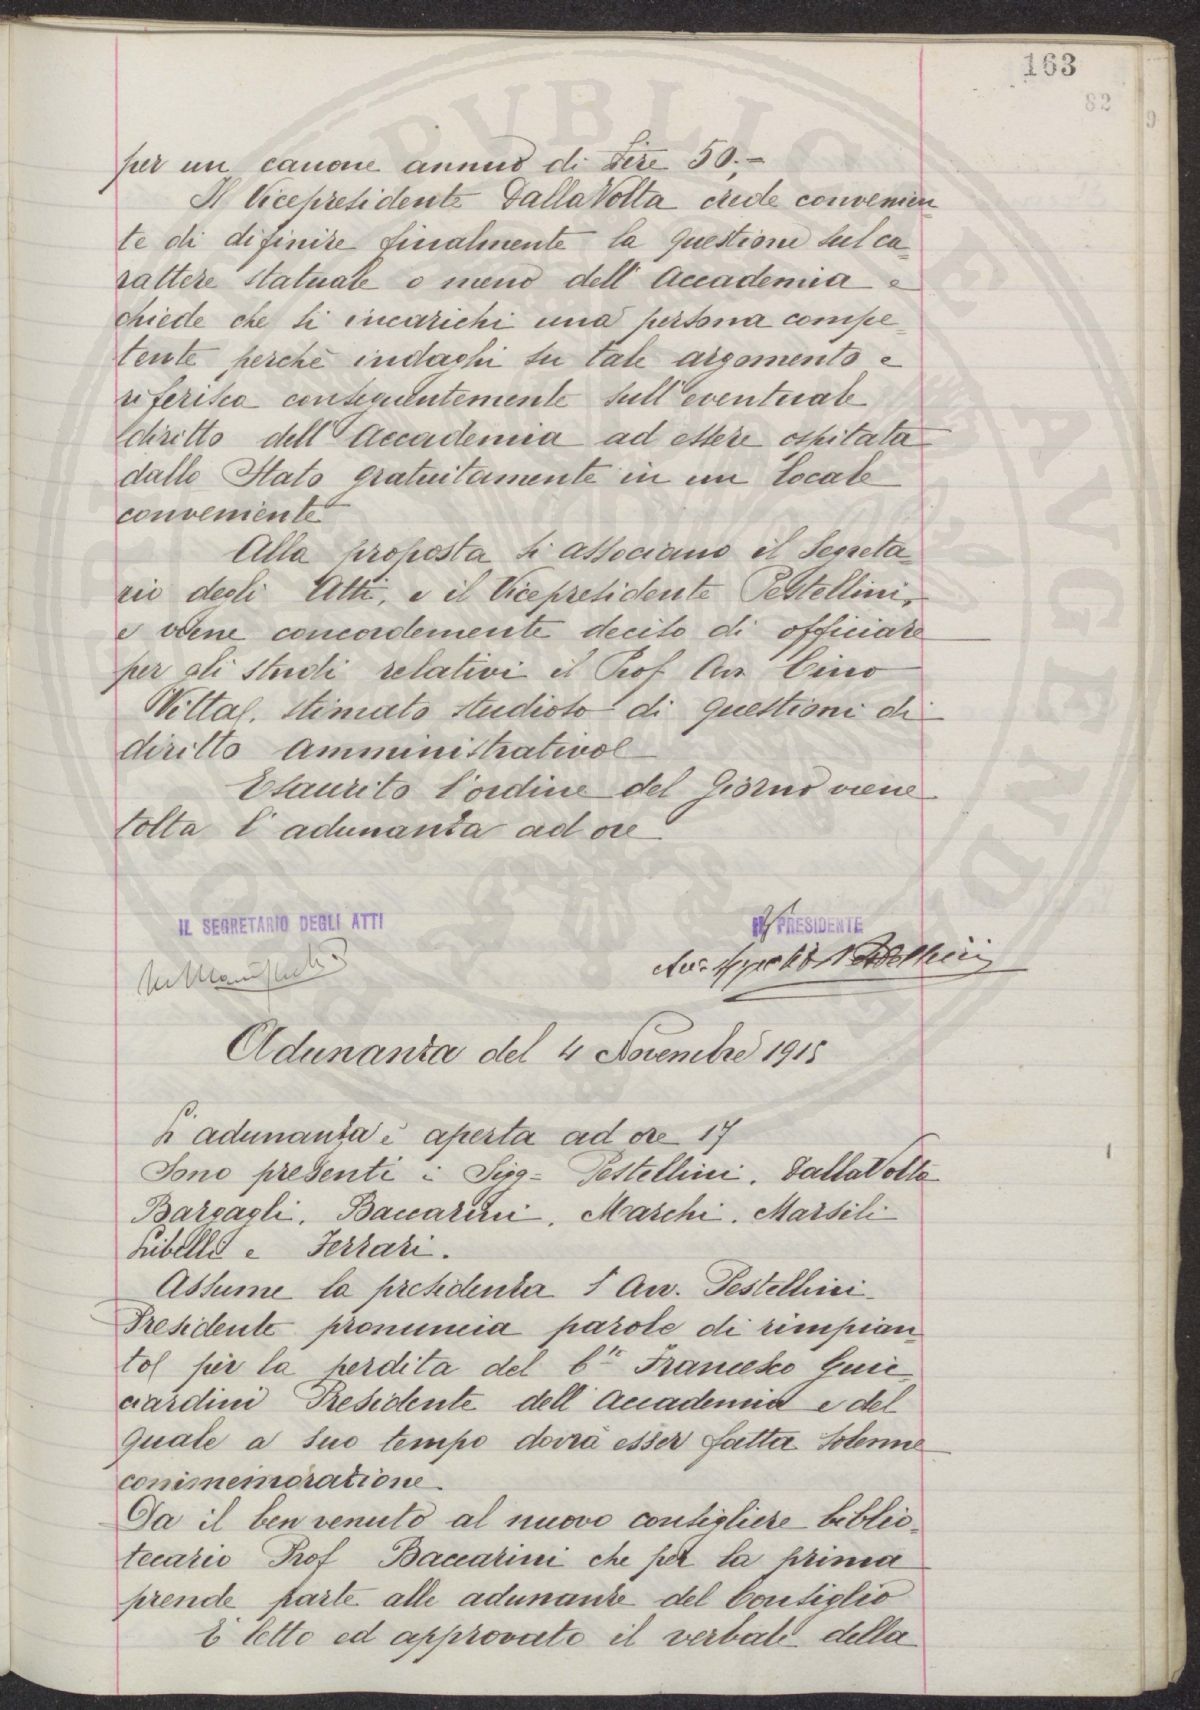 163
82
per un canone annuo di Lire 50.=
Il Vicepresidente Dalla Volta crede convenien
te di difinire finalmente la questione sul ca-
rattere statuale o meno dell' Accademia e
chiede che si incarichi una persona compe-
tente perchè indaghi su tale argomento e
riferisca conseguentemente sull' eventuale
diritto dell' Accademia ad essere ospitata
dallo Stato gratuitamente in un locale
conveniente
Alla proposta si associano il Segreta-
rio degli Atti, e il Vicepresidente Pestellini,
e viene concordemente deciso di officiare
per gli studi relativi il Prof Avv. Cino
Vitta, stimato studioso di questioni di
diritto amministrativo
Esaurito l'ordine del giorno viene
tolta l' adunanza ad ore
IL SEGRETARIO DEGLI ATTI
IL PRESIDENTE
Pestellini
Adunanza del 4 Novembre 1915
L' adunanza è aperta ad ore 17
Sono presenti i Sigg= Pestellini, Dalla Volta
Bargagli, Baccarini, Marchi, Marsili
Libelli e Ferrari.
Assume la presidenza l' Avv. Pestellini
Presidente pronuncia parole di rimpian-
to per la perdita del Cte Francesco Guic-
ciardini Presidente dell' Accademia e del
quale a suo tempo dovrà esser fatta solenne
commemorazione.
Da il ben venuto al nuovo consigliere biblio-
tecario Prof Baccarini che per la prima
prende parte alle adunanze del Consiglio
È letto ed approvato il verbale della